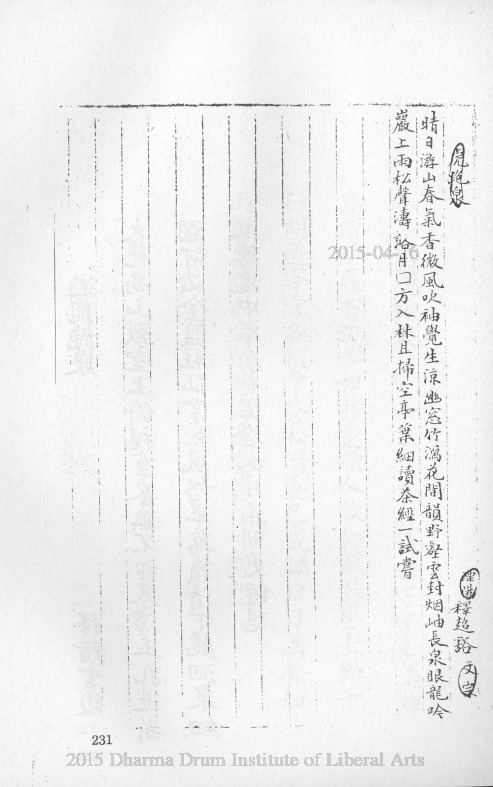 虎跑泉
釋超豁 文宗
晴日游山春氣香微風吹袖覺生涼幽窓竹瀉花間韻野壑雲封烟岫長泉眼龍吟
巖上雨松聲濤月□方入林且掃空亭葉細讀茶經一試嘗
2015-04-16
231
2015 Dharma Drum Institute of Liberal Arts